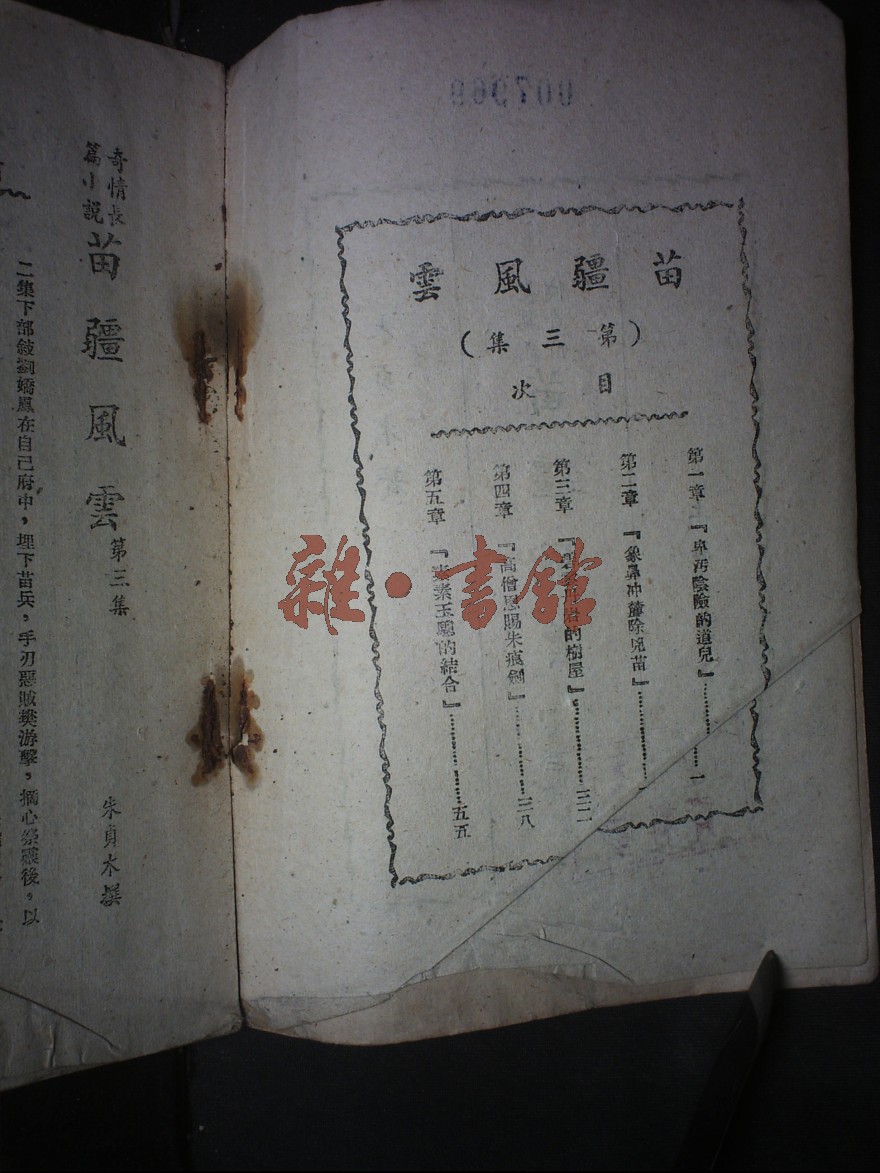 007969
苗疆風雲
（第三集）
目次
第一章 『卑汚陰險的道兒』…………一
第二章 『象鼻冲薰除兇苗』…………
第三章 『岩的樹屋』…………三二
第四章 『高僧恩賜朱痕劍』…………三八
第五章 『素素玉驄的結合』…………五五
雜·書館
奇情長
篇小説
苗疆風雲 第三集
朱貞木撰
二集下部敍劉嬌鳳在自己府中，埋下苗兵，手刃惡賊樊游擊，摘心祭靈後，以